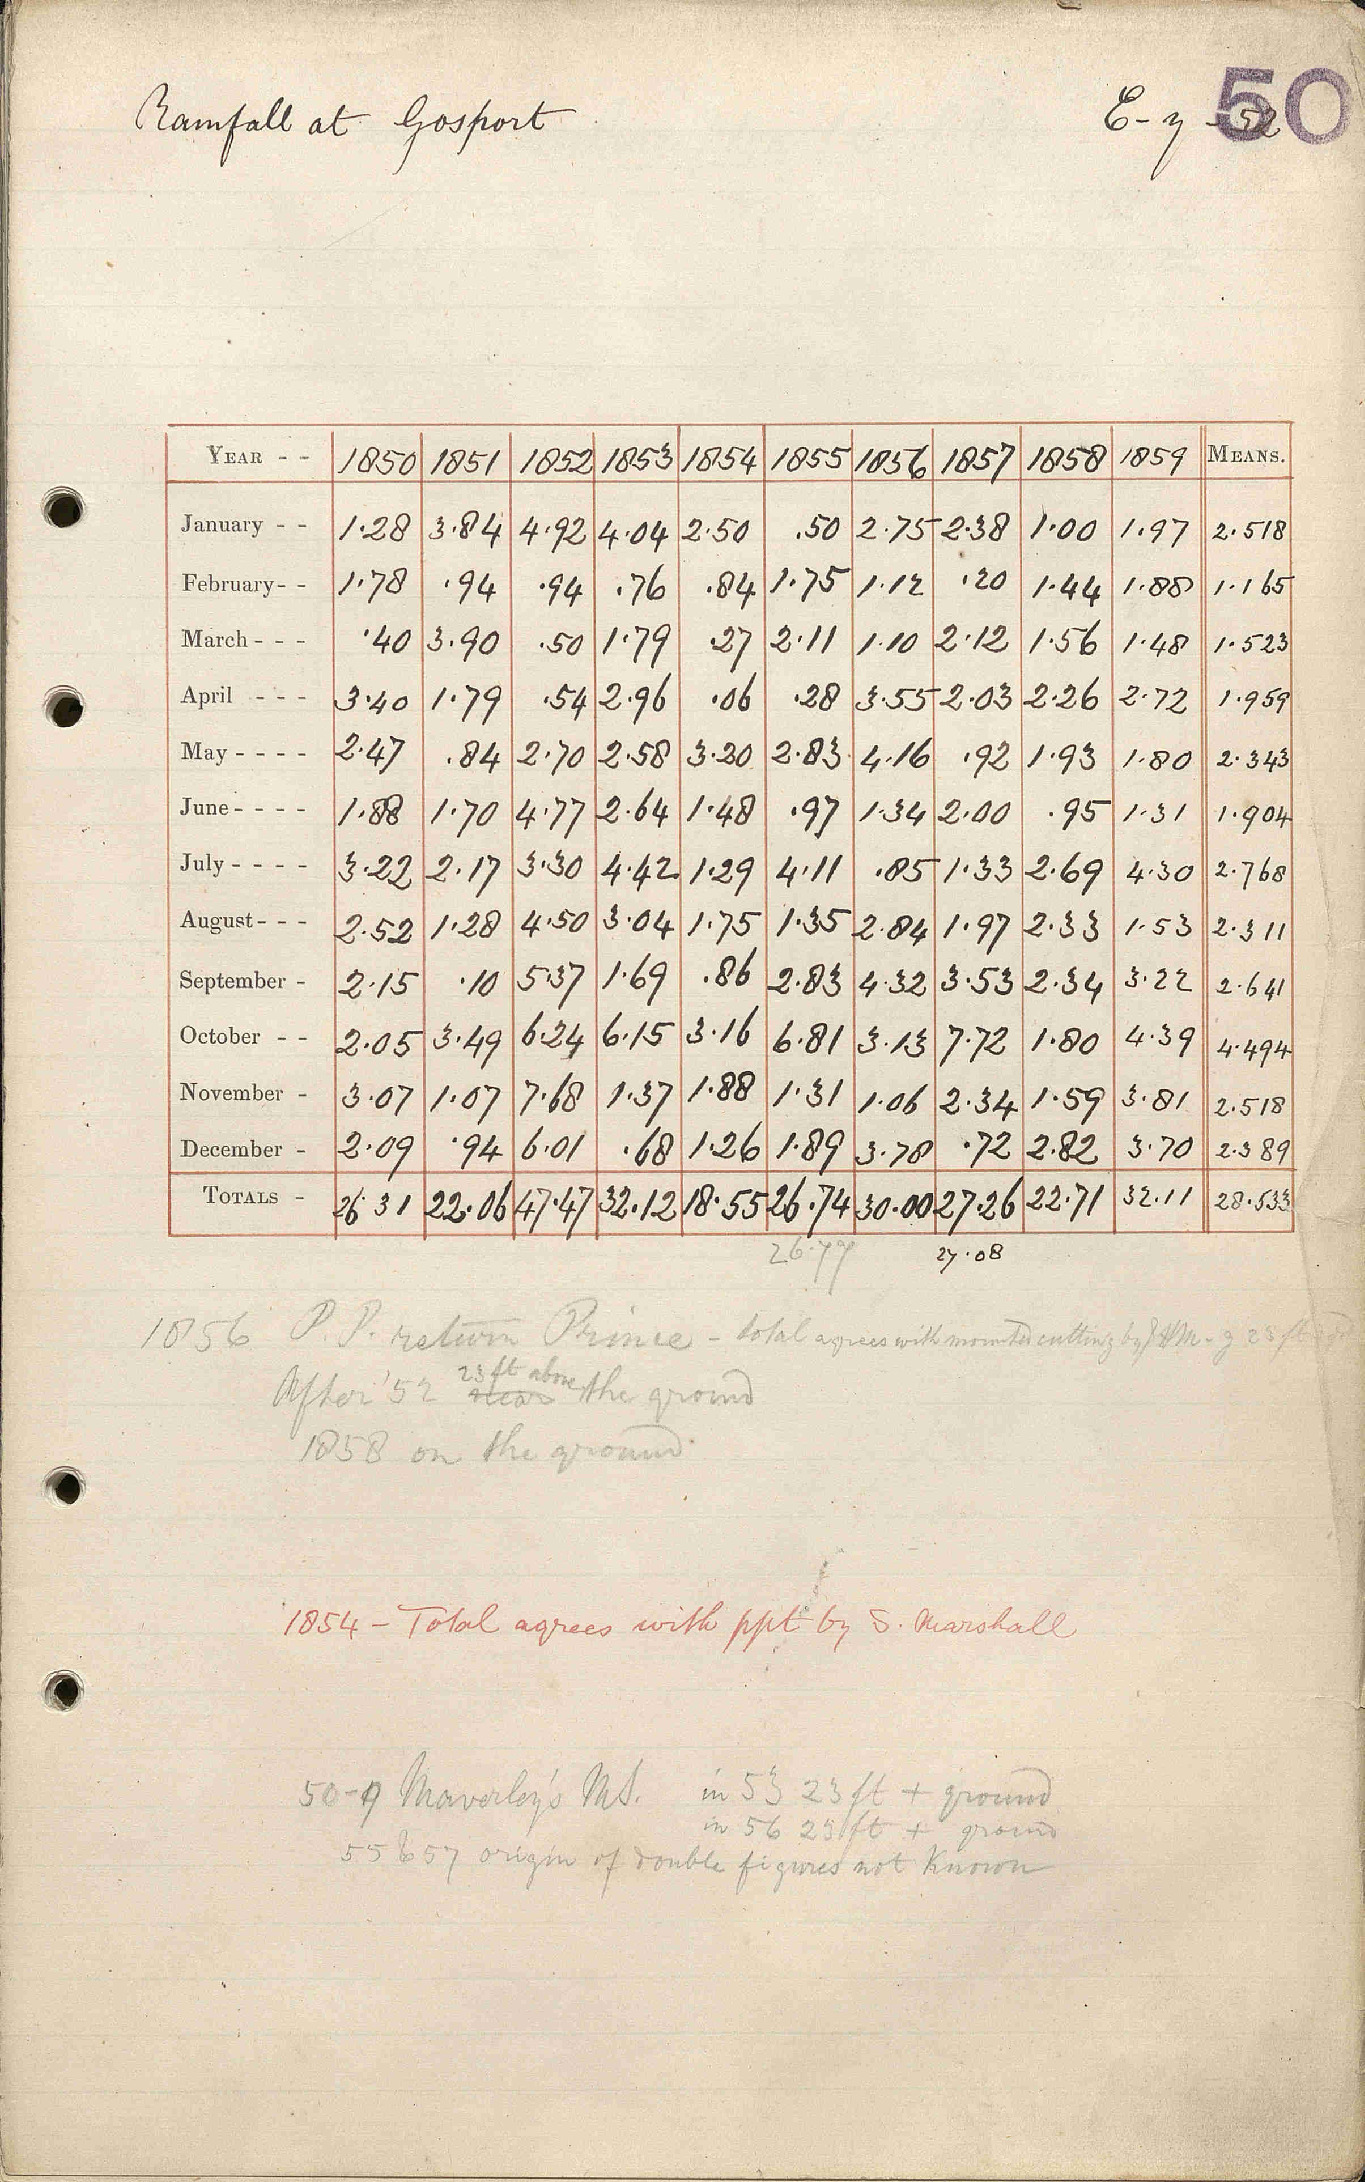 Rainfall at Gosport E-y 50
YEAR - - 1850 1851 1852 1853 1854 1855 1856 1857 1858 1859 MEANS.
January - - 1.28 3.84 4.92 4.04 2.50 .50 2.75 2.38 1.00 1.97 2.518
February - - 1.78 .94 .94 .76 .84 1.75 1.12 .20 1.44 1.88 1.165
March - - - .40 3.90 .50 1.79 .27 2.11 1.10 2.12 1.56 1.48 1.523
April - - - 3.40 1.79 .54 2.96 .06 .28 3.55 2.03 2.26 2.72 1.959
May - - - - 2.47 .84 2.70 2.58 3.20 2.83 4.16 .92 1.93 1.80 2.343
June - - - - 1.88 1.70 4.77 2.64 1.48 .97 1.34 2.00 .95 1.31 1.904
July - - - - 3.22 2.17 3.30 4.42 1.29 4.11 .85 1.33 2.69 4.30 2.768
August - - - 2.52 1.28 4.50 3.04 1.75 1.35 2.84 1.97 2.33 1.53 2.311
September - 2.15 .10 5.37 1.69 .86 2.83 4.32 3.53 2.34 3.22 2.641
October - - 2.05 3.49 6.24 6.15 3.16 6.81 3.13 7.72 1.80 4.39 4.494
November - 3.07 1.07 7.68 1.37 1.88 1.31 1.06 2.34 1.59 3.81 2.518
December - 2.09 .94 6.01 .68 1.26 1.89 3.78 .72 2.82 3.70 2.389
TOTALS - 26.31 22.06 47.47 32.12 18.55 26.74 30.00 27.26 22.71 32.11 28.533
26.79 27.08
1856 P.P. return Prince - total agrees with mounted cutting by 23 ft
After '52 23 ft above the ground
1858 on the ground
1854 - Total agrees with ppt by S. Marshall
50-9 MS. in 53 23 ft + ground
in 56 23 ft + ground
55 & 57 origin of double figures not known